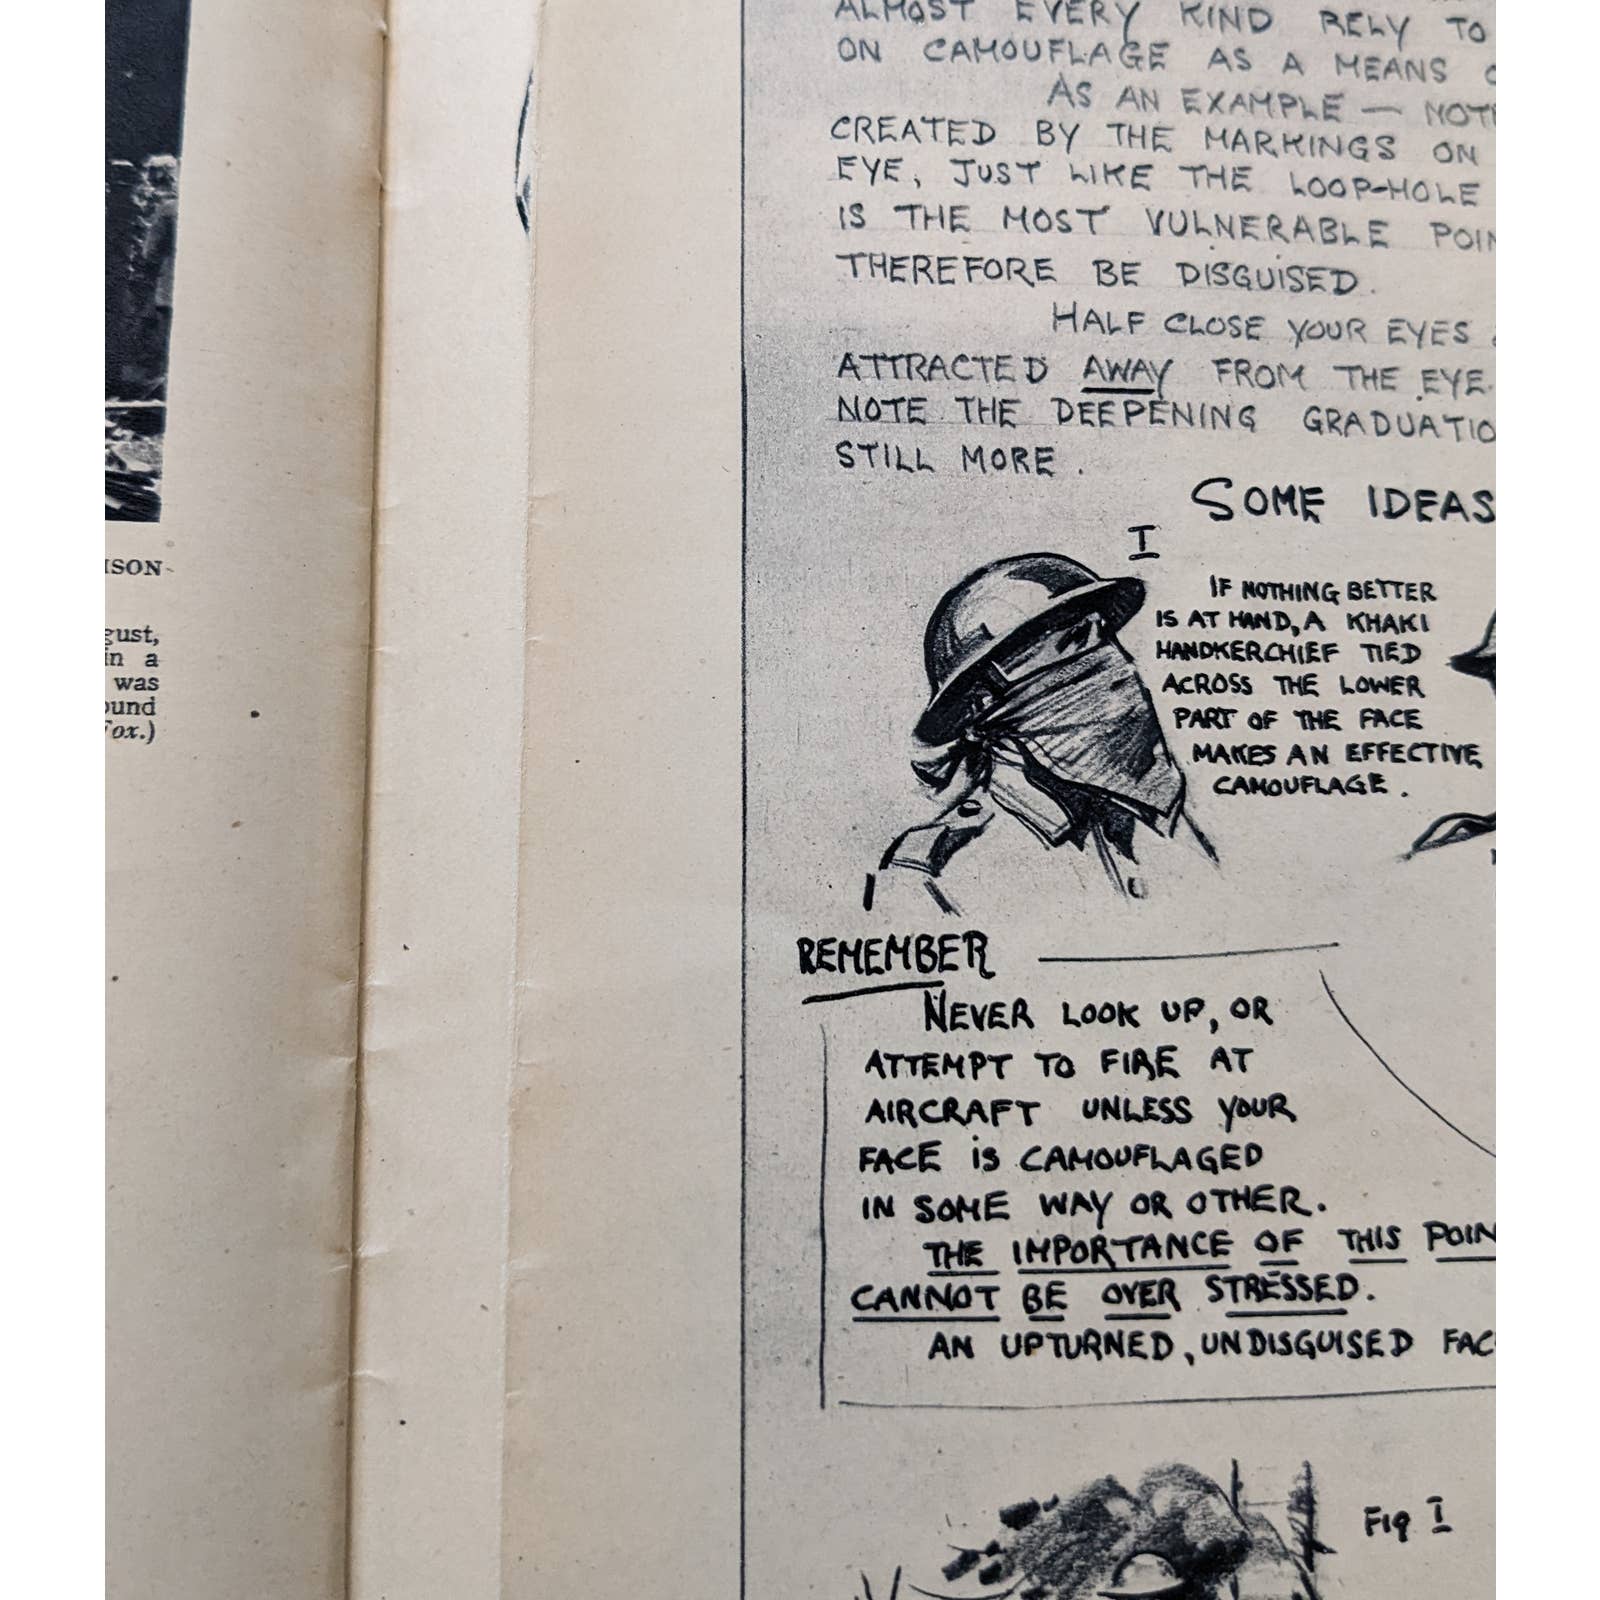 ISON-
gust,
in a
was
ound
Fox.)
ALMOST EVERY KIND RELY TO
ON CAMOUFLAGE AS A MEANS
AS AN EXAMPLE — NOTE
CREATED BY THE MARKINGS ON
EYE, JUST LIKE THE LOOP-HOLE
IS THE MOST VULNERABLE POIN
THEREFORE BE DISGUISED.
HALF CLOSE YOUR EYES
ATTRACTED AWAY FROM THE EYE.
NOTE THE DEEPENING GRADUATIO
STILL MORE.
SOME IDEAS
I
IF NOTHING BETTER
IS AT HAND, A KHAKI
HANDKERCHIEF TIED
ACROSS THE LOWER
PART OF THE FACE
MAKES AN EFFECTIVE
CAMOUFLAGE.
REMEMBER
NEVER LOOK UP, OR
ATTEMPT TO FIRE AT
AIRCRAFT UNLESS YOUR
FACE IS CAMOUFLAGED
IN SOME WAY OR OTHER.
THE IMPORTANCE OF THIS POIN
CANNOT BE OVER STRESSED.
AN UPTURNED, UNDISGUISED FAC
Fig I